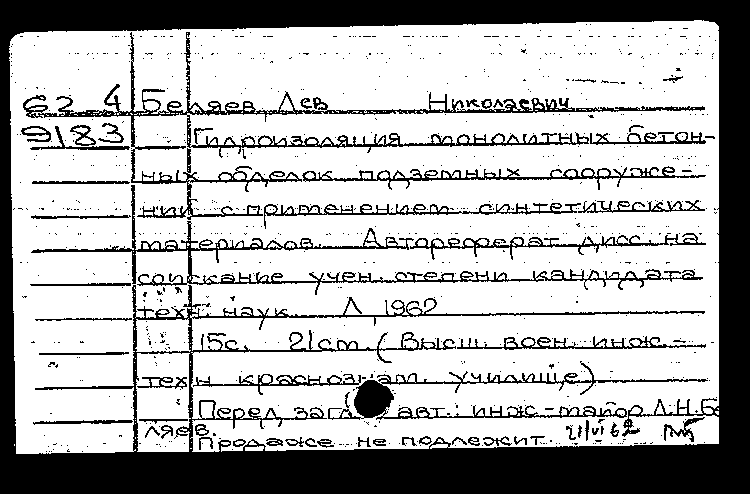 62-4 Беляев, Лев Николаевич
9183 Гидроизоляция монолитных бетон-
ных обделок подземных сооруже-
ний с применением синтетических
материалов. Автореферат дисс. на
соискание учен. степени кандидата
техн. наук. Л., 1962
15с. 21см. (Высш. воен. инж.-
техн краснознам. училище)
Перед загл. авт.: инж.-майор Л.Н.Бе
ляев.
Продаже не подлежит. 21/VI 62